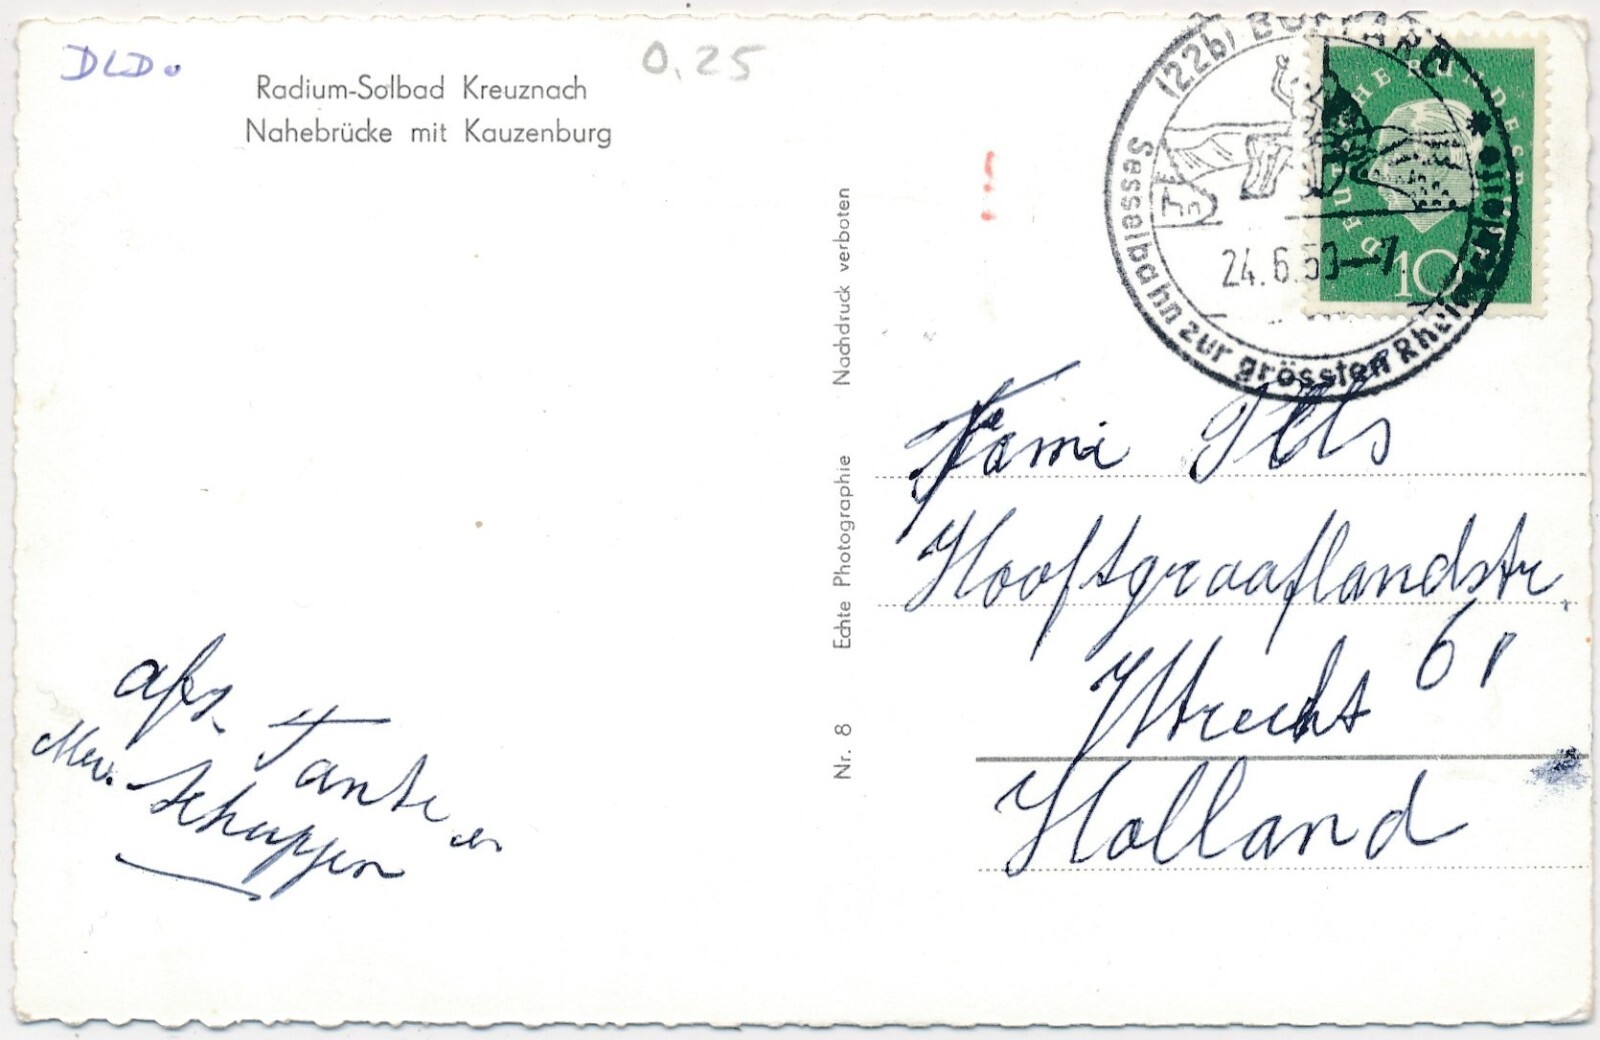 DLD.
0.25
Radium-Solbad Kreuznach
Nahebrücke mit Kauzenburg
(22b) BOPPARD
Sesselbahn zur grössten Rheinschleife
24.6.60–7
DEUTSCHE BUNDESPOST
10
Nr. 8 Echte Photographie Nachdruck verboten
Fami
Hooftgraaflandstr.
61
Utrecht
Holland
afz. Tante en
Mev. Schuppen